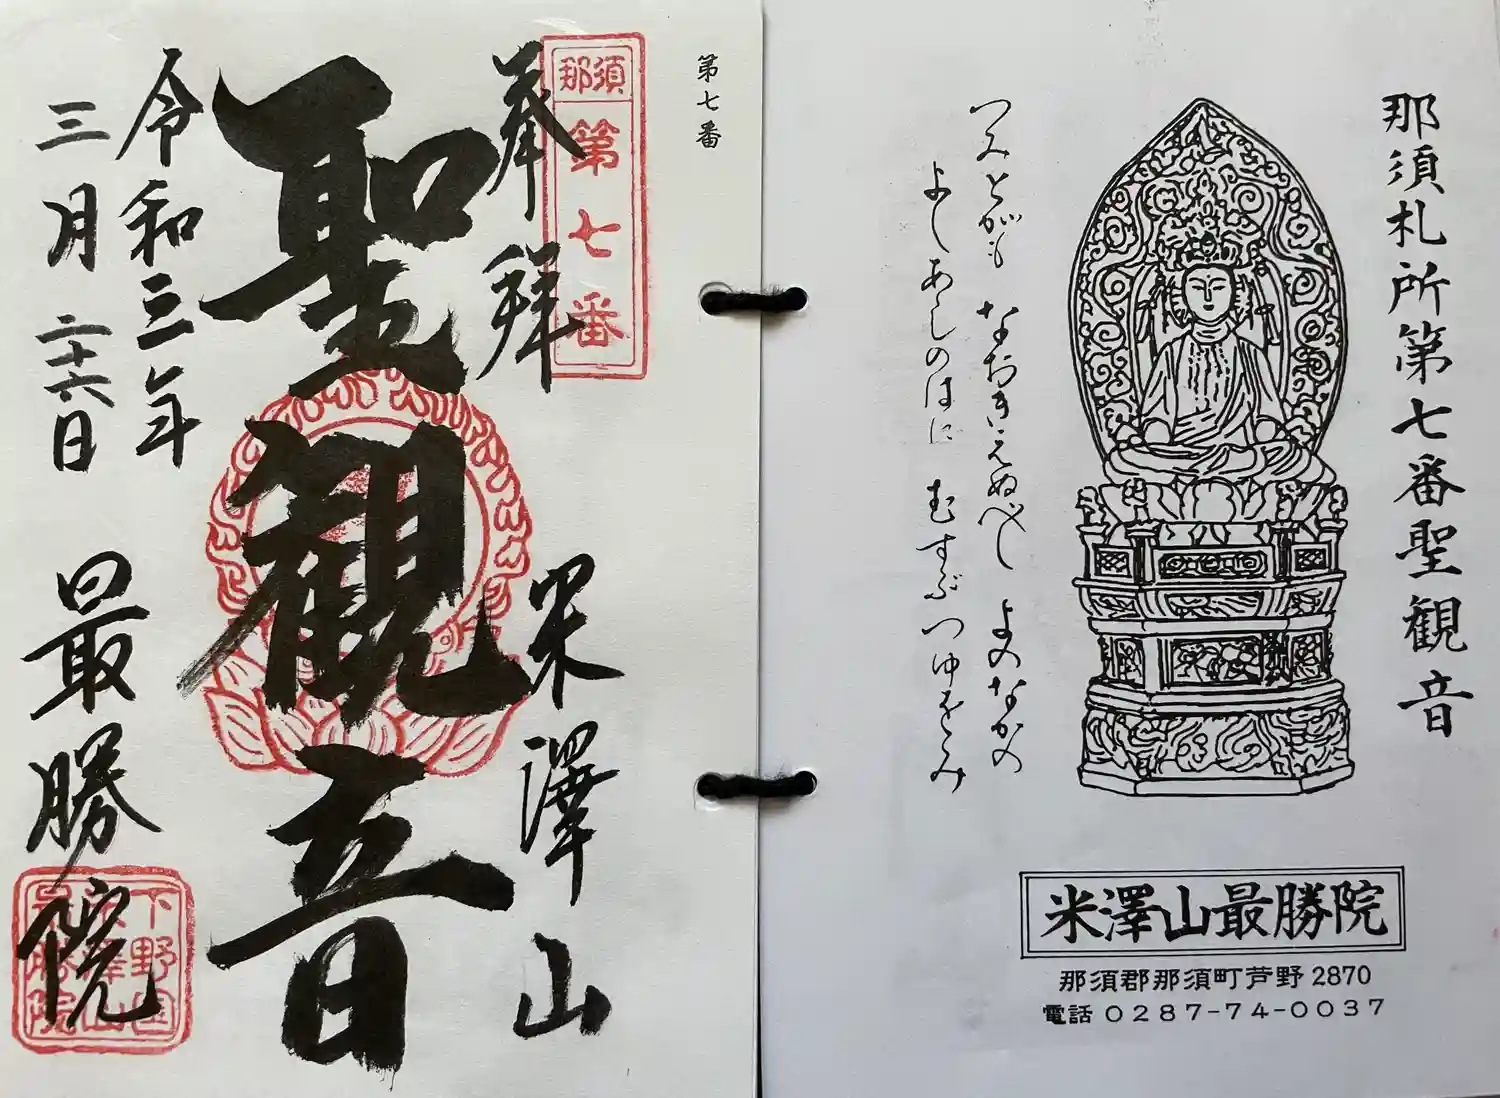 那須札所第七番聖観音
つみとがも なおきえぬべし よのなかの
よしあしのはに むすぶ
米澤山最勝院
那須郡那須町芦野2870
電話 0287-74-0037
第七番
那須
第七番
奉拝
米澤山
聖観音
令和三年
三月二十六日
最勝院
下野国
米澤山
最勝院